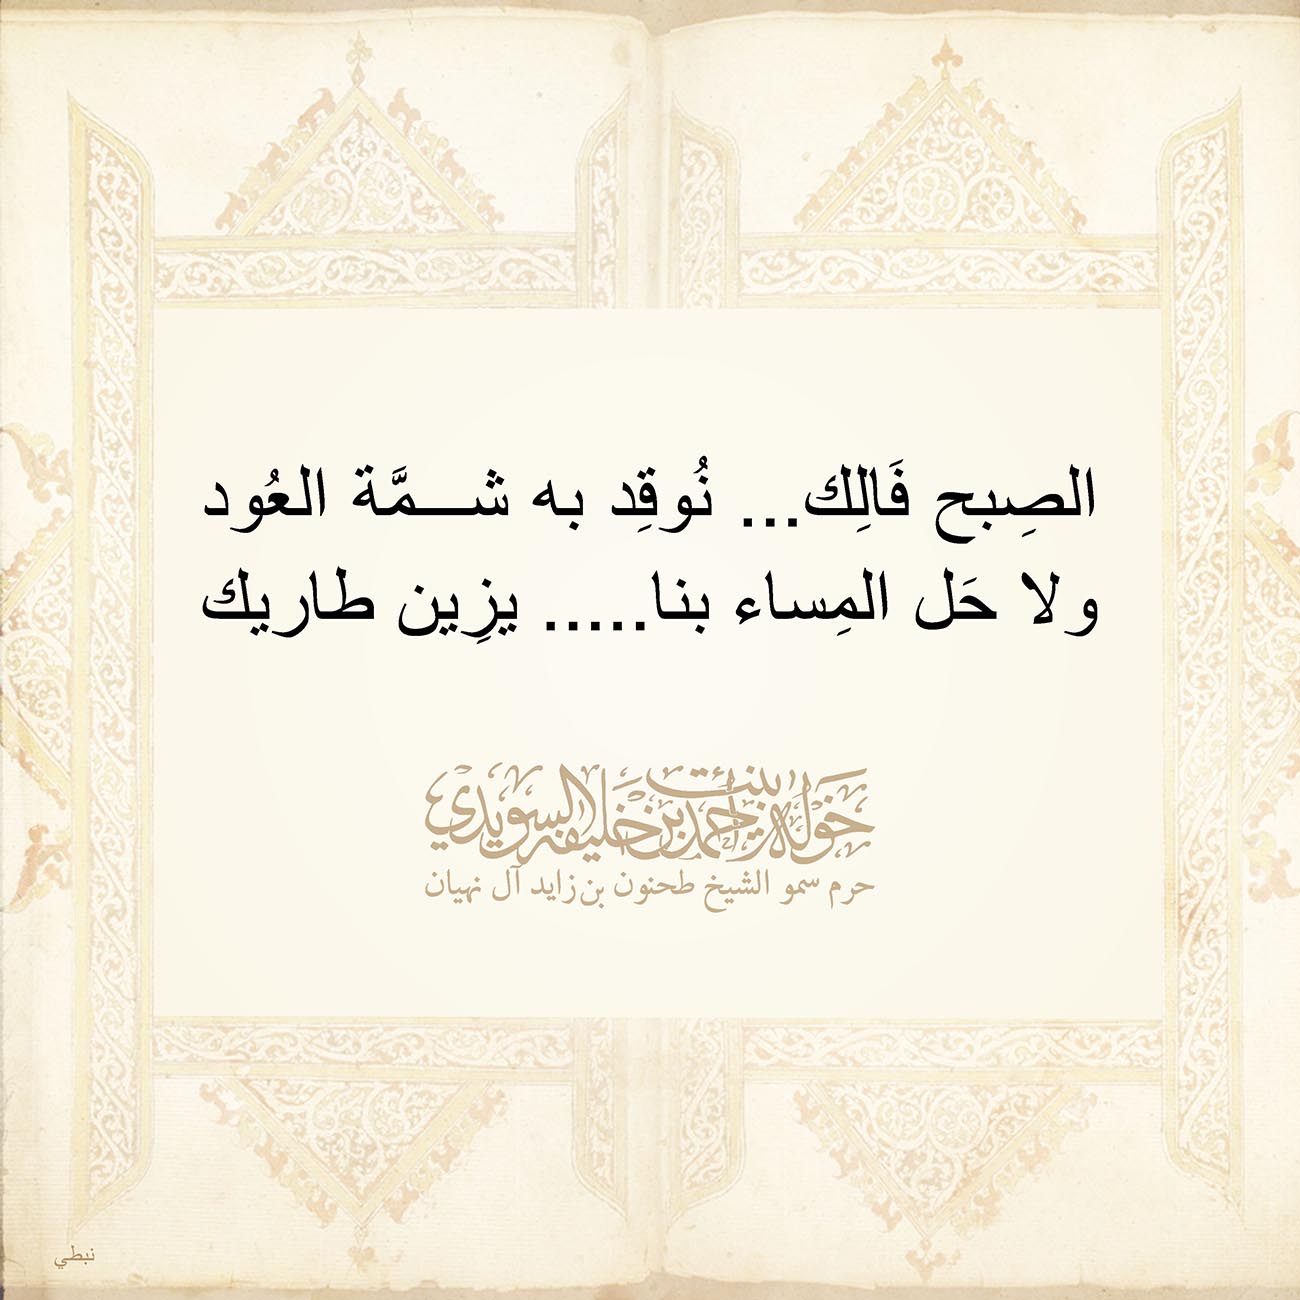 الصِبح فَالِك... نُوقِد به شـــمَّة العُود
ولا حَل المِساء بنا..... يزِين طاريك
خوله بنت احمد بن خليفه السويدي
حرم سمو الشيخ طحنون بن زايد آل نهيان
نبطي